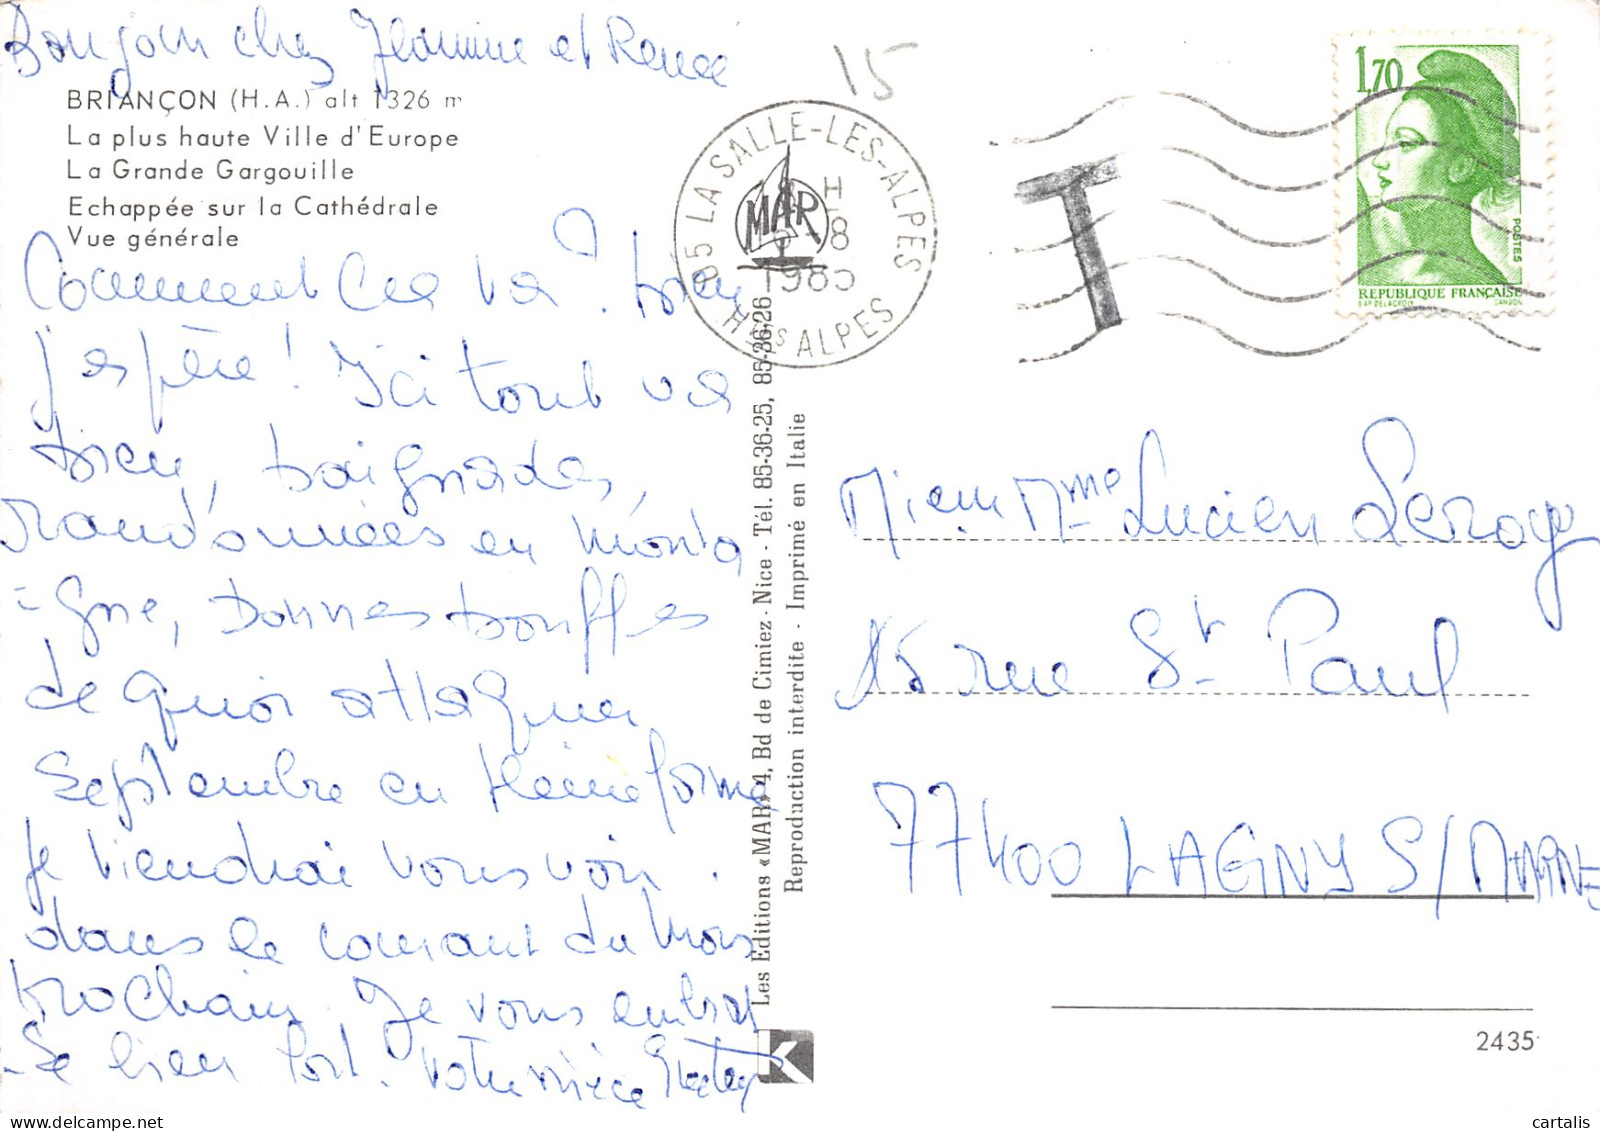 Bonjour chez Jeannine et Renée
BRIANÇON (H.A.) alt 1326 m
La plus haute Ville d'Europe
La Grande Gargouille
Echappée sur la Cathédrale
Vue générale
Comment ça va ? bien
j'espère ! Ici tout va
bien, baignades,
randonnées en monta
=gne, bonnes bouffes
de quoi attaquer
Septembre en pleine forme
Je viendrai vous voir
dans le courant du mois
prochain. Je vous embras
-se bien fort. Votre nièce
Les Editions «MAR» 4, Bd de Cimiez - Nice - Tél. 85-36-25, 85-36-26
Reproduction interdite - Imprimé en Italie
15
05 LA SALLE-LES-ALPES
H
8
1985
HTES ALPES
MAR
T
1,70
POSTES
REPUBLIQUE FRANÇAISE
D'AP. DELACROIX GANDON
Mme Lucien Leroy
15 rue St Paul
77400 LAGNY S/MARNE
K
2435
cartalis
www.delcampe.net